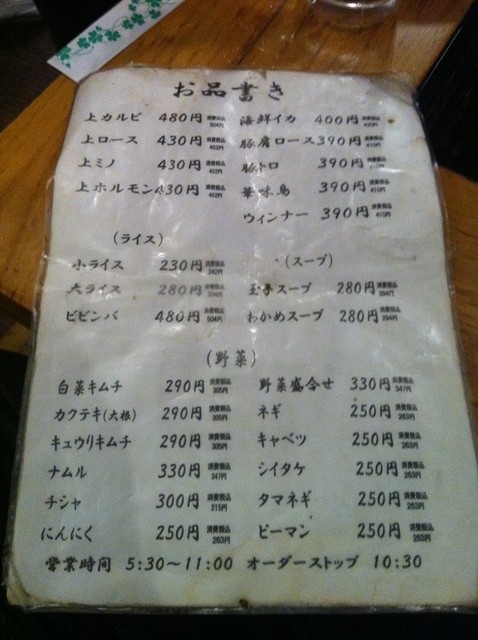 お品書き
上カルビ 480円 消費税込 504円
上ロース 430円 消費税込 452円
上ミノ 430円 消費税込 452円
上ホルモン 430円 消費税込 452円
海鮮イカ 400円 消費税込 420円
豚肩ロース 390円 消費税込 410円
豚トロ 390円 消費税込 410円
華味鳥 390円 消費税込 410円
ウィンナー 390円 消費税込 410円
(ライス)
小ライス 230円 消費税込 242円
大ライス 280円 消費税込 294円
ビビンバ 480円 消費税込 504円
(スープ)
玉子スープ 280円 消費税込 294円
わかめスープ 280円 消費税込 294円
(野菜)
白菜キムチ 290円 消費税込 305円
カクテキ(大根) 290円 消費税込 305円
キュウリキムチ 290円 消費税込 305円
ナムル 330円 消費税込 347円
チシャ 300円 消費税込 315円
にんにく 250円 消費税込 263円
野菜盛合せ 330円 消費税込 347円
ネギ 250円 消費税込 263円
キャベツ 250円 消費税込 263円
シイタケ 250円 消費税込 263円
タマネギ 250円 消費税込 263円
ピーマン 250円 消費税込 263円
営業時間 5:30～11:00 オーダーストップ 10:30